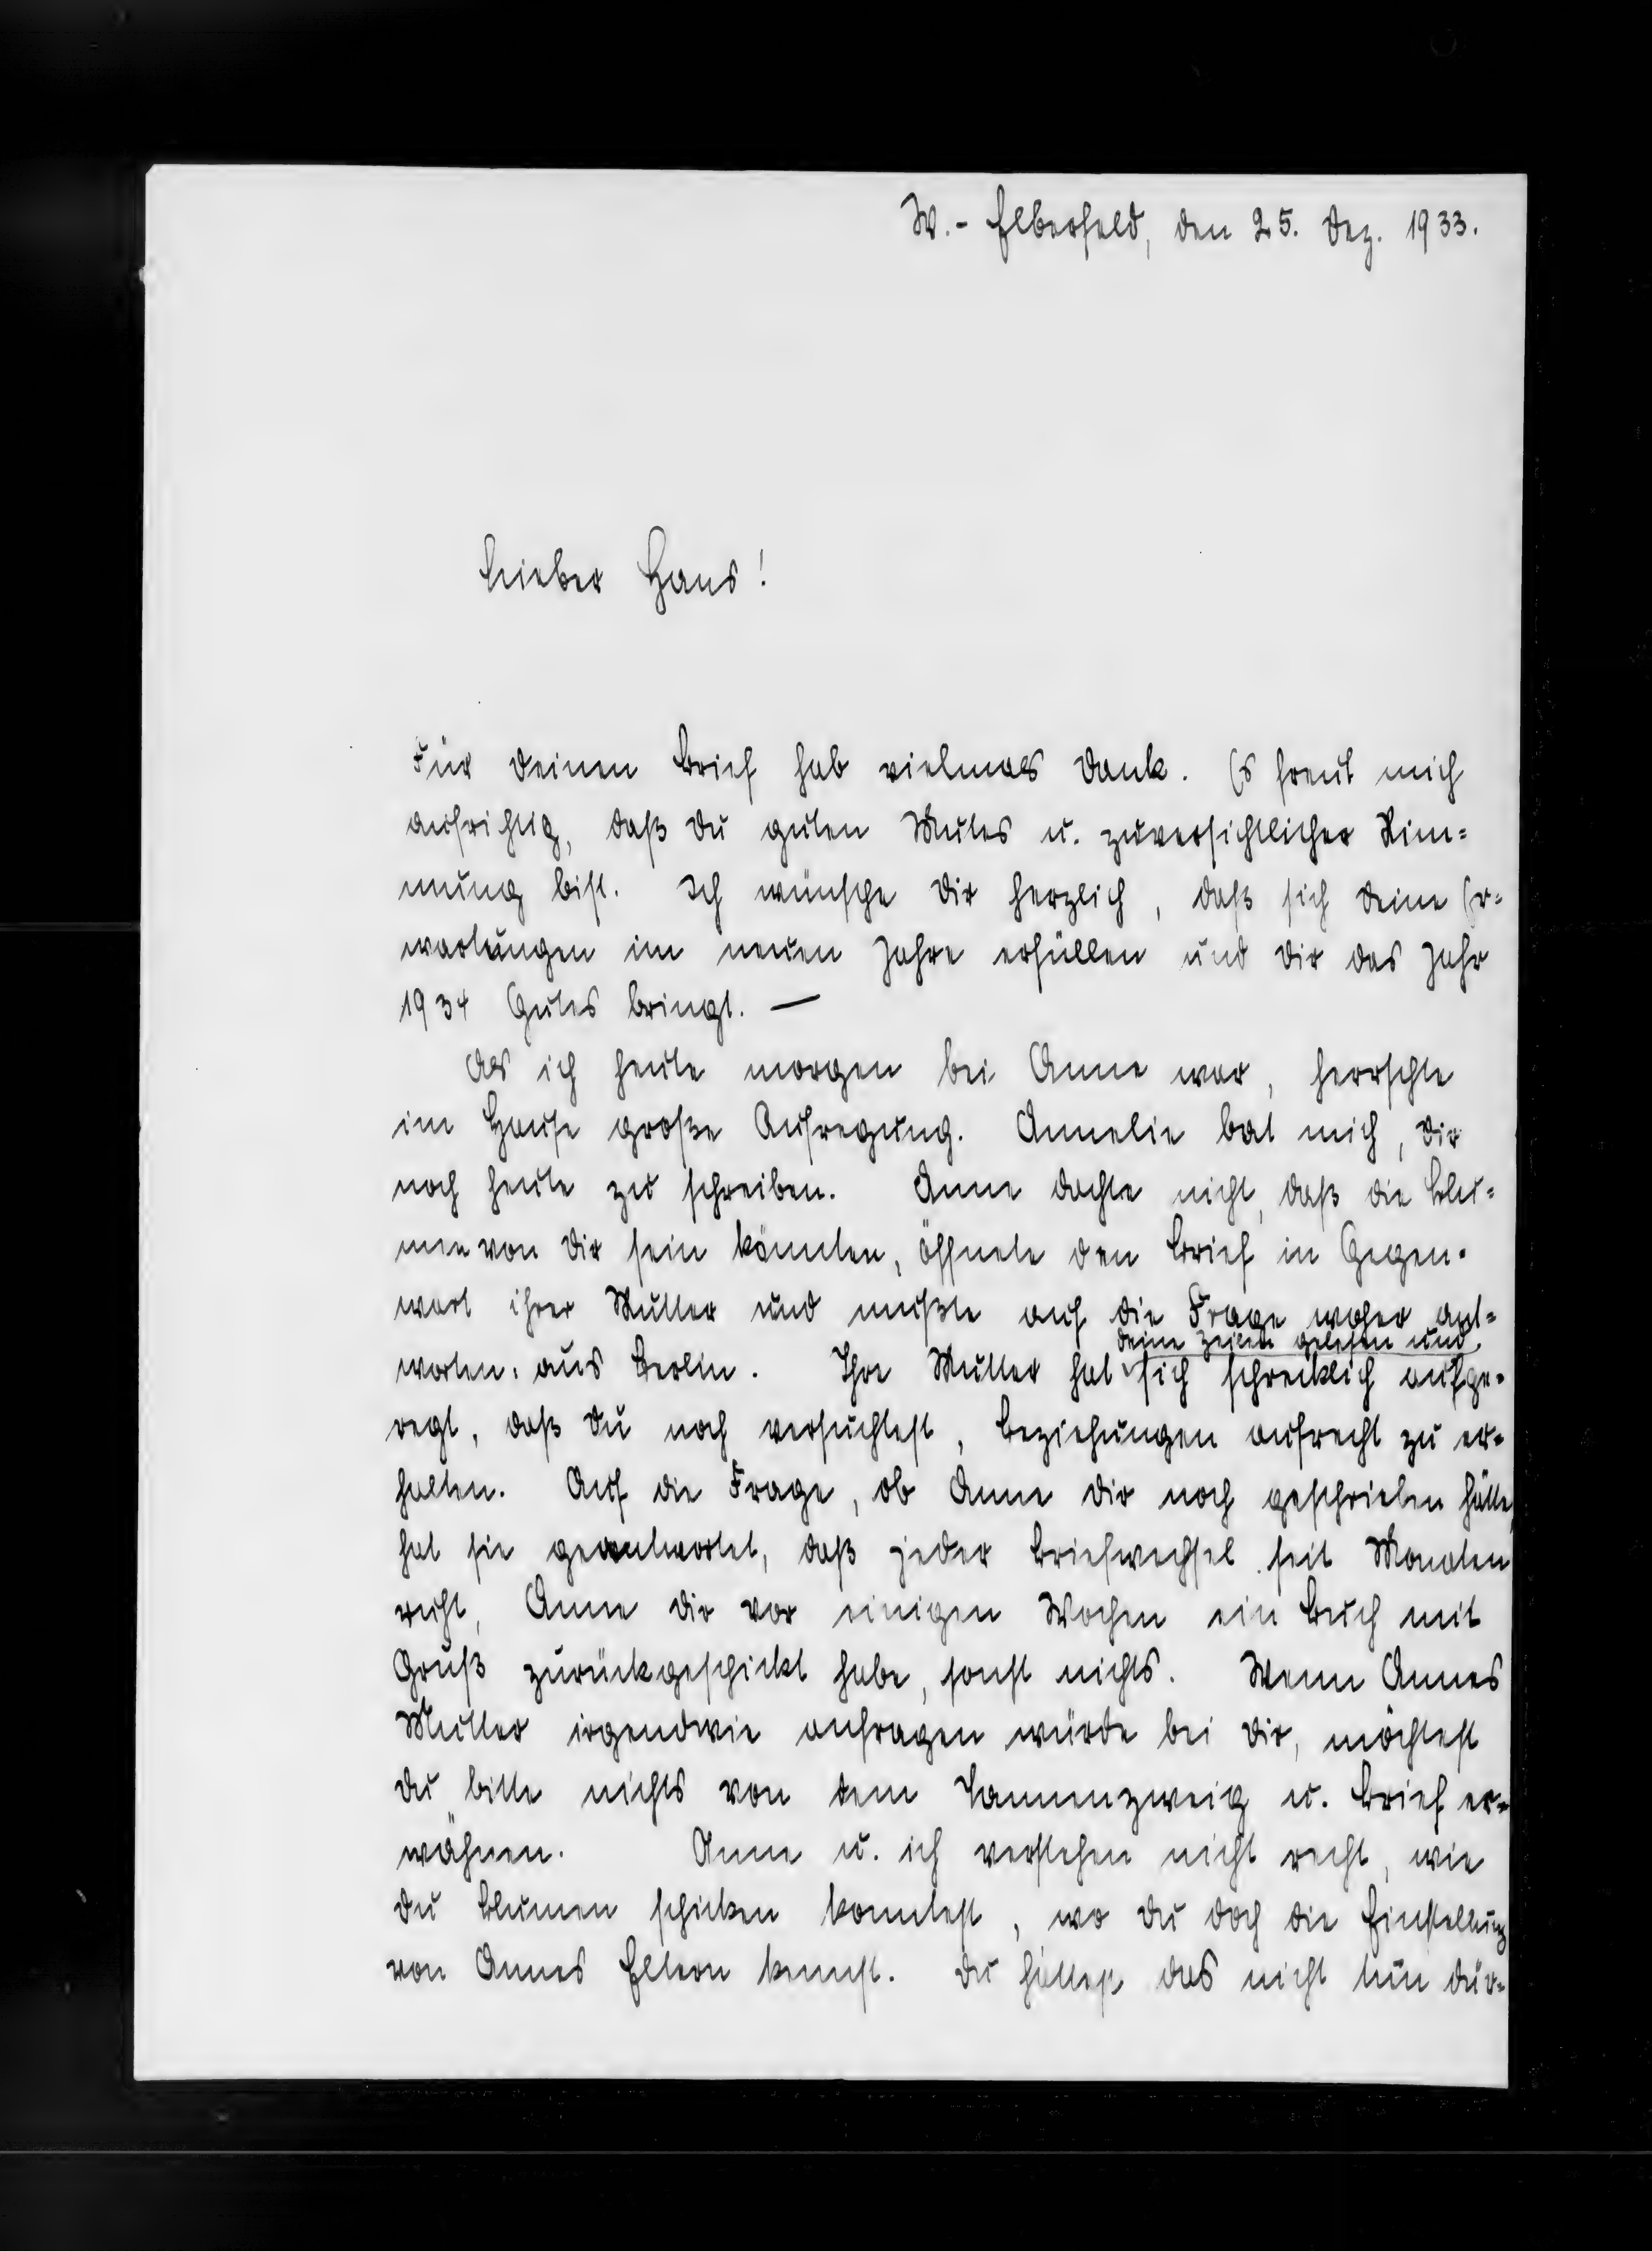 W.- Elberfeld, den 25. Dez. 1933.
Lieber Hans!
Für Deinen Brief hab vielmals Dank. Es freut mich
aufrichtig, daß Du guten Mutes u. zuversichtlicher Stim=
mung bist. Ich wünsche Dir herzlich, daß sich Deine Er=
wartungen im neuen Jahre erfüllen und Dir das Jahr
1934 Gutes bringt. —
Als ich heute morgen bei Anne war, herrschte
im Hause große Aufregung. Annelie bat mich, Dir
noch heute zu schreiben. Anne dachte nicht, daß die Blu=
men von Dir sein könnten, öffnete den Brief in Gegen=
wart ihrer Mutter und mußte auf die Frage woher ant=
Deine Zeilen gelesen und
worten: aus Berlin. Ihre Mutter hat sich schrecklich aufge=
regt, daß Du noch versuchtest, Beziehungen aufrecht zu er=
halten. Auf die Frage, ob Anne Dir noch geschrieben hätte,
hat sie geantwortet, daß jeder Briefwechsel seit Monaten
ruht, Anne Dir vor einigen Wochen ein Buch mit
Gruß zurückgeschickt habe, sonst nichts. Wenn Annes
Mutter irgendwie anfragen würde bei Dir, möchtest
Du bitte nichts von dem Tannenzweig u. Brief er=
wähnen. Anne u. ich verstehen nicht recht, wie
Du Blumen schicken konntest, wo Du doch die Einstellung
von Annes Eltern kennst. Du hättest das nicht tun dür=